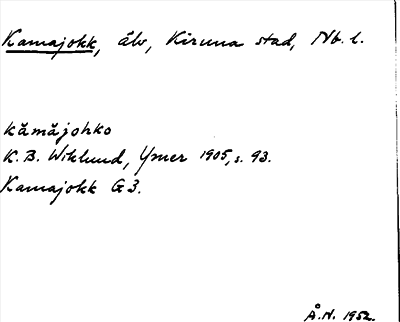 Kamajokk, älv, Kiruna stad, Nb. l.
kåmåjohko
K. B. Wiklund, Ymer 1905, s. 93.
Kamajokk G 3.
Å. N. 1952.